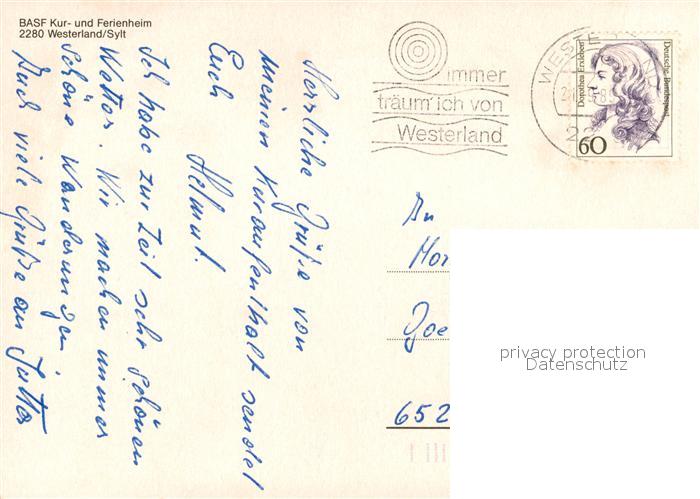 BASF Kur- und Ferienheim
2280 Westerland/Sylt
Herzliche Grüße von
meinen Kuraufenthalt sendet
Euch
Helmut.
Ich habe zur Zeit sehr schönen
Wetter. Wir machen immer
schöne Wanderungen
Auch viele Grüße an Jutta
immer
träum' ich von
Westerland
WESTE
22
Deutsche Bundespost
Dorothea Erxleben
60
An
Doe
652
privacy protection
Datenschutz